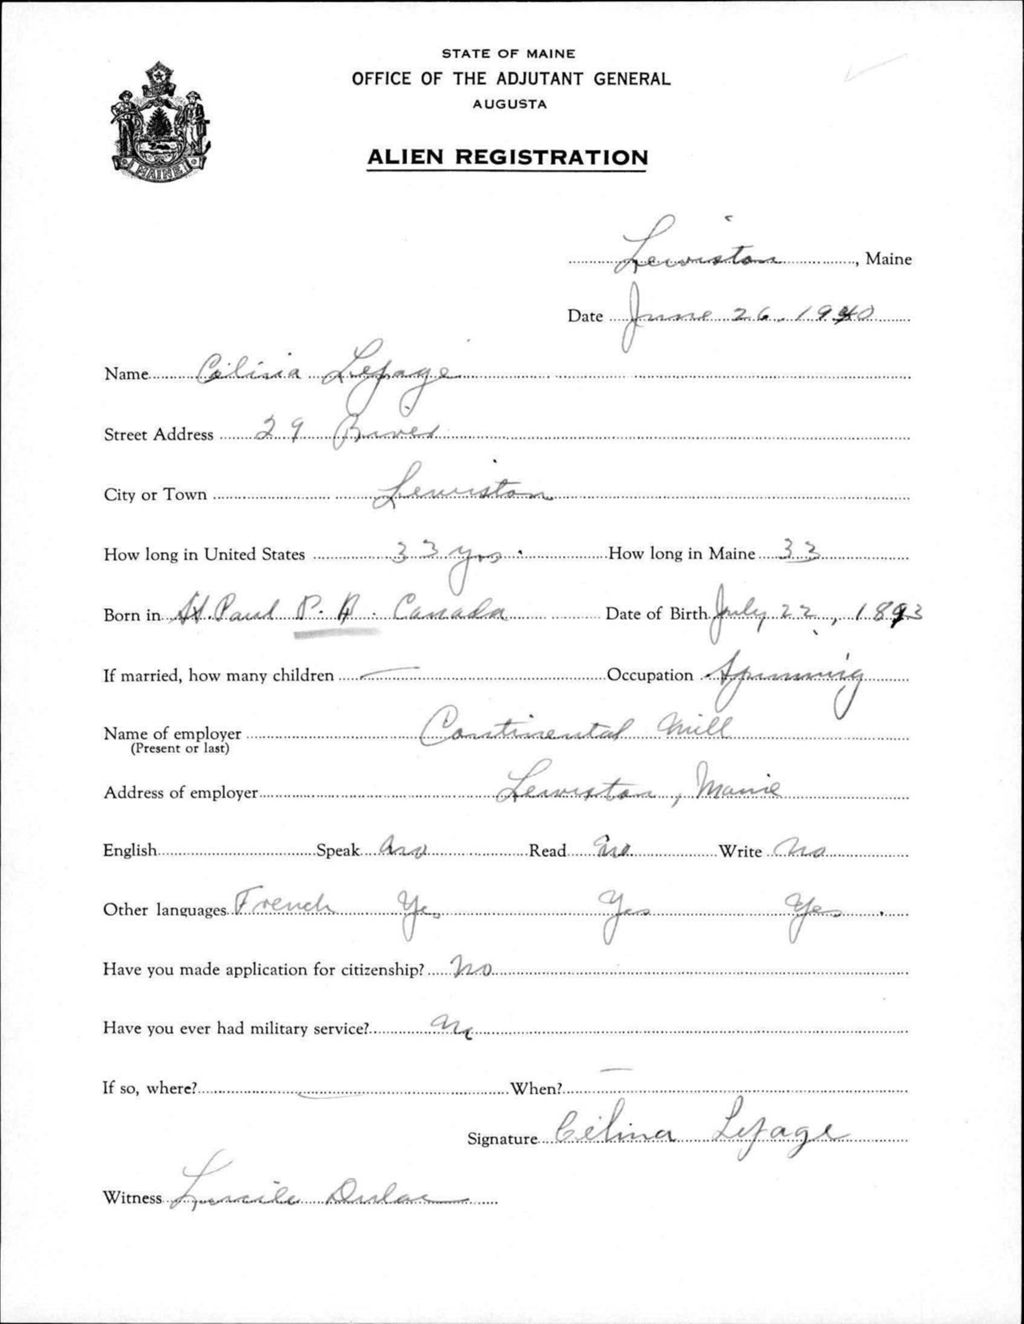 STATE OF MAINE
OFFICE OF THE ADJUTANT GENERAL
AUGUSTA
ALIEN REGISTRATION
MAINE
Lewiston, Maine
Date June 26, 1940
Name Celina Lepage
Street Address 29 River
City or Town Lewiston
How long in United States 33 yrs. How long in Maine 33
Born in St. Paul P. Q. Canada Date of Birth July 22, 1893
If married, how many children — Occupation Spinning
Name of employer Continental Mill
(Present or last)
Address of employer Lewiston, Maine
English Speak No Read No Write No
Other languages French Yes Yes Yes.
Have you made application for citizenship? No
Have you ever had military service? No
If so, where? — When? —
Signature Célina Lepage
Witness Lucile Dulac